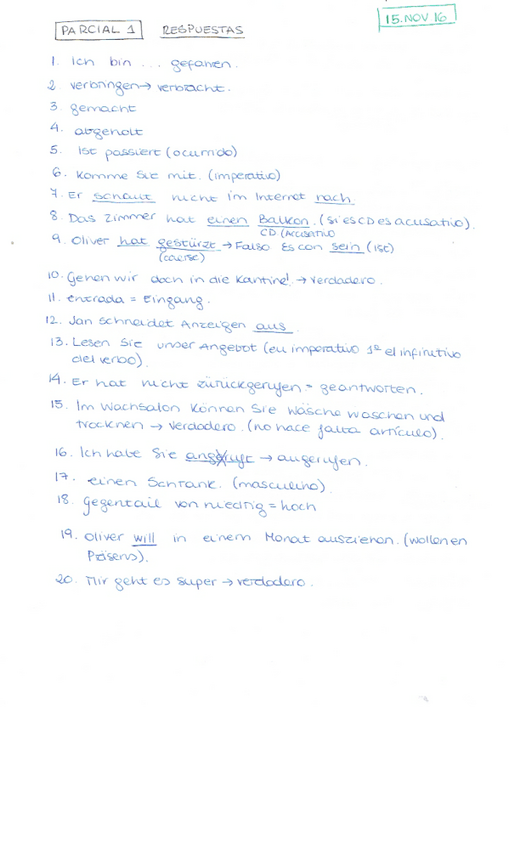 PARCIAL 1 RESPUESTAS 15.NOV 16
1. Ich bin ... gefahren.
2. verbringen → verbracht.
3. gemacht
4. abgeholt
5. Ist passiert (ocurrido)
6. Komme Sie mit. (imperativo)
7. Er schaut nicht im Internet nach
8. Das Zimmer hat einen Balkon. (si es CD es acusativo).
CD (Acusativo
9. Oliver hat gestürzt → Falso Es con sein (ist)
(caerse)
10. Gehen wir doch in die Kantine! → verdadero.
11. entrada = Eingang.
12. Jan schneidet Anzeigen aus.
13. Lesen Sie unser Angebot (en imperativo 1º el infinitivo
del verbo).
14. Er hat nicht zurückgerufen = geantworten.
15. Im Wachsalon können Sie Wäsche waschen und
trocknen → verdadero. (no hace falta artículo).
16. Ich habe Sie → angerufen.
17. einen Schrank. (masculino).
18. Gegentail von niedrig = hoch
19. Oliver will in einem Monat ausziehen. (wollen en
Präsens).
20. Mir geht es super → verdadero.